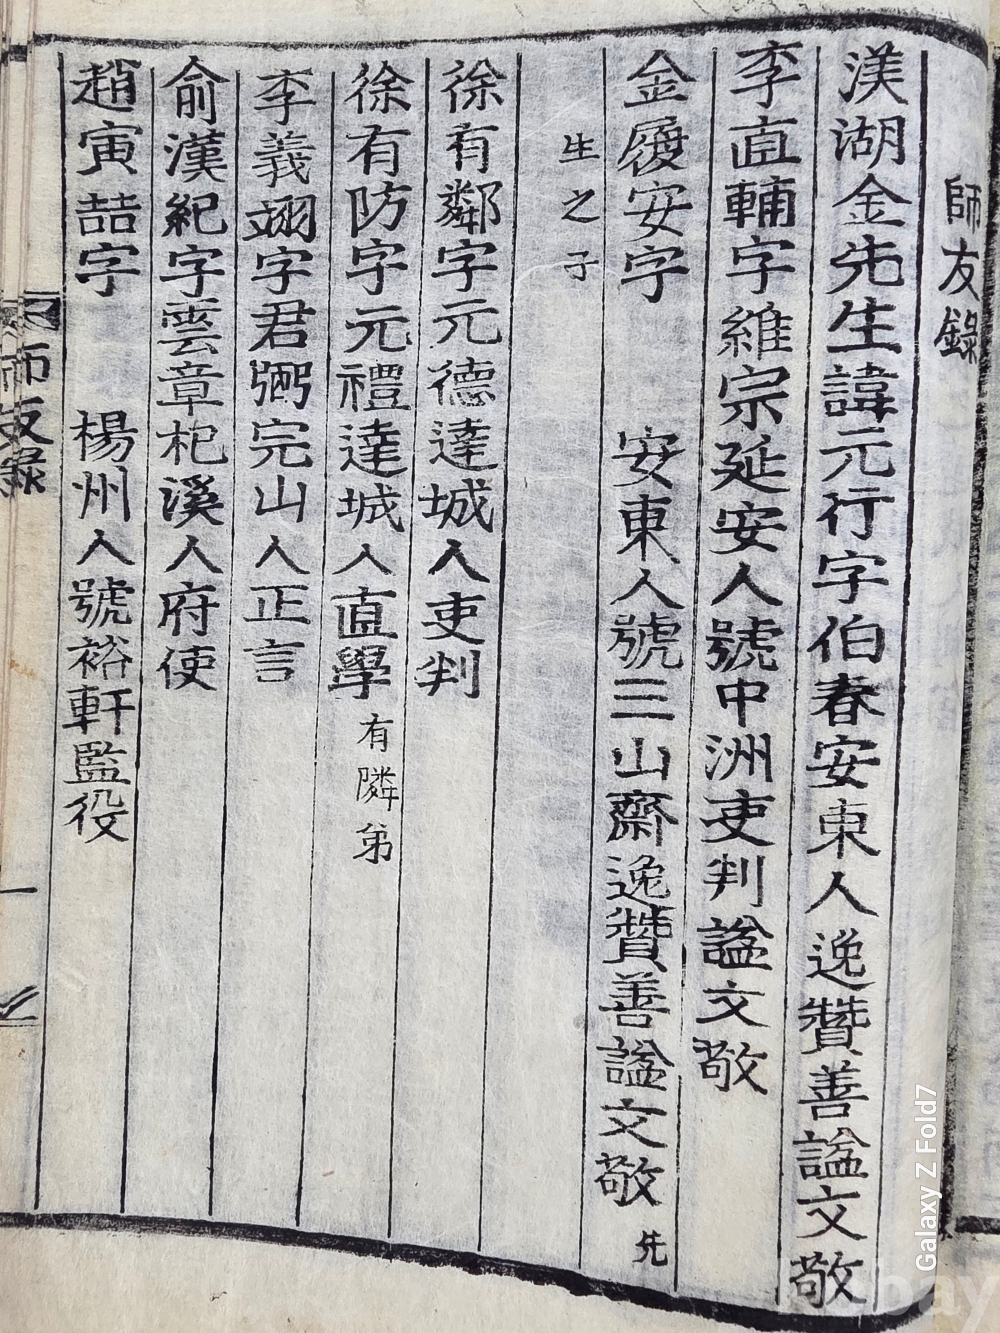 師友錄
渼湖金先生諱元行字伯春安東人逸贊善諡文敬
李直輔字維宗延安人號中洲吏判諡文敬
金履安字 安東人號三山齋逸贊善諡文敬先
生之子
徐有鄰字元德達城人吏判
徐有防字元禮達城人直學有隣弟
李義翊字君弼完山人正言
俞漢紀字雲章杞溪人府使
趙寅喆字 楊州人號裕軒監役
師友錄
一
Galaxy Z Fold7